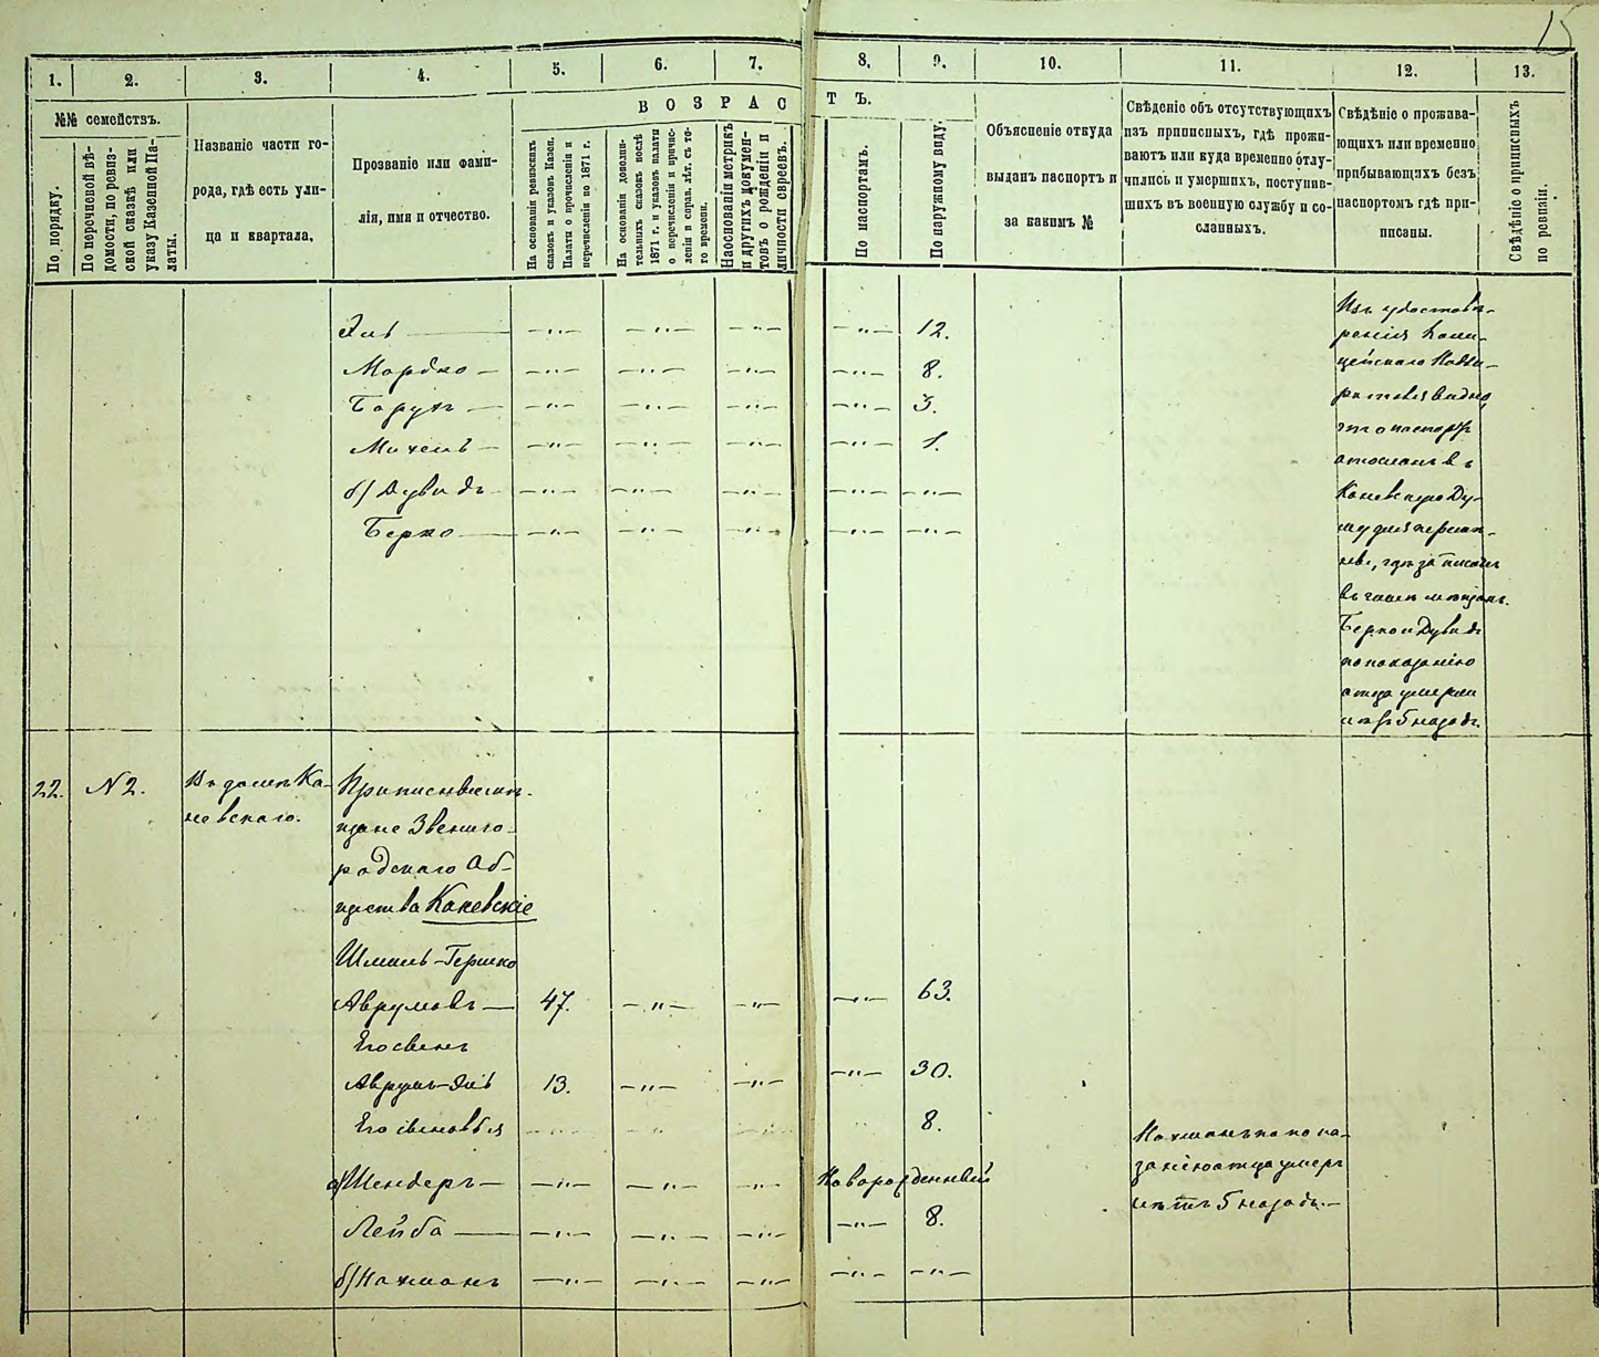 15
1. 2. 3. 4. 5. 6. 7. 8. 9. 10. 11. 12. 13.
№№ семействъ.
По порядку.
По перечневой вѣ-
домости, по ревиз-
ской сказкѣ или
указу Казенной Па-
латы.
Названіе части го-
рода, гдѣ есть ули-
ца и квартала.
Прозваніе или фами-
лія, имя и отчество.
ВОЗРАСТЪ.
На основаніи ревизскихъ
сказокъ и указовъ Казен.
Палаты о причисленіи и
перечисленіи по 1871 г.
На основаніи дополни-
тельныхъ сказокъ послѣ
1871 г. и указовъ палаты
о перечисленіи и причис-
леніи и справ. лѣт. съ то-
го времени.
На основаніи метрикъ
и другихъ докумен-
товъ о рожденіи и
личности евреевъ.
По паспортамъ.
По наружному виду.
Объясненіе откуда
выданъ паспортъ и
за какимъ №
Свѣденіе объ отсутствующихъ
изъ приписныхъ, гдѣ прожи-
ваютъ или куда временно отлу-
чились и умершихъ, поступив-
шихъ въ военную службу и со-
сланныхъ.
Свѣдѣніе о прожива-
ющихъ или временно
прибывающихъ безъ
паспортомъ гдѣ при-
писаны.
Свѣдѣніе о приписныхъ
по ревизіи.
Эль — —"— —"— —"— —"— 12.
Мордко — —"— —"— —"— —"— 8.
Борухъ — —"— —"— —"— —"— 3.
Михель — —"— —"— —"— —"— 1.
б/ Дувидъ —"— —"— —"— —"— —"—
Берко — —"— —"— —"— —"— —"—
Изъ удостовѣ-
ренія Поли-
цейскаго Надзи-
рателя видно,
что паспортъ
отосланъ въ
Каневскую Ду-
му для перемѣ-
ны, гдѣ записанъ
въ числѣ мѣщанъ.
Берко и Дувидъ
по показанію
отца умерли
лѣтъ 5 назадъ.
22. N 2. Въ домѣ Ка-
невскаго.
Приписные мѣ-
щане Звениго-
родскаго Об-
щества Каневскіе
Шмиль-Гершко
Аврумовъ — 47. —"— —"— —"— 63.
Его сынъ
Аврумъ-Эль 13. —"— —"— —"— 30.
Его сыновья 8.
а/ Шендеръ — —"— —"— —"— Новорожденный
Лейба — —"— —"— —"— —"— 8.
б/ Нахманъ —"— —"— —"— —"— —"—
Нахманъ по пока-
занію отца умеръ
лѣтъ 5 назадъ.—